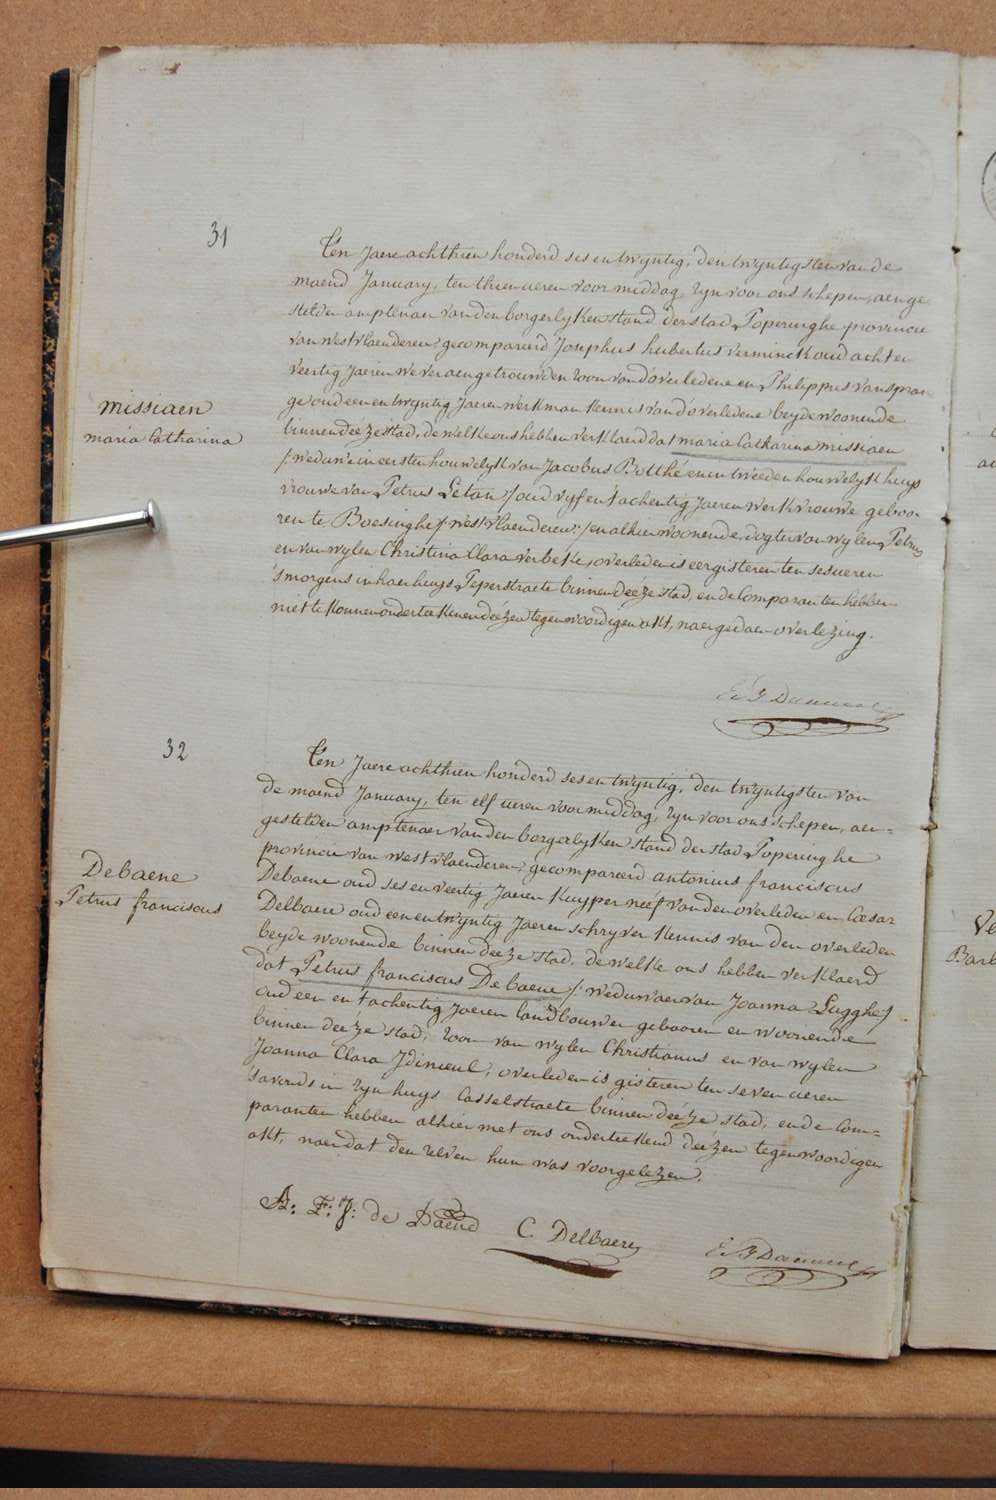 31
missiaen
maria Catharina
Ten Jaere achthien honderd ses en twyntig, den twyntigsten van de
maend January, ten thien ueren voor middag, zyn voor ons schepen, aenge
stelden amptenaer van den borgerlyken stand der stad Poperinghe provincie
van westvlaenderen, gecompareerd Josephus hubertus verminck oud acht en
veertig Jaeren wever aengetrouwden zoon van d'overledene en Philippus van spran
ge oud een en twyntig Jaeren werkman kennis van d'overledene beyde woonende
binnen deéze stad, de welke ons hebben verklaerd dat maria Catharina missiaen
/: weduwe in eersten houwelyk van Jacobus Botthé en en tweeden houwelyk huys
vrouwe van Petrus Letan :/ oud vyf en t'achentig Jaeren werkvrouwe geboo-
ren te Boesinghe /: westvlaenderen :/ en alhier woonende dogter van wylen Petrus
en van wylen Christina Clara verbeke, overleden is eergisteren ten ses ueren
's morgens in haer huys Peperstraete binnen deéze stad, en de Comparanten hebben
niet te konnen onderteekenen deézen tegenwoordigen akt, naer gedaen overlezing.
32
Debaene
Petrus franciscus
Ten Jaere achthien honderd ses en twyntig, den twyntigsten van
de maend January, ten elf ueren voormiddag, zyn voor ons schepen, aen=
gestelden amptenaer van den borgerlyken stand der stad Poperinghe
provincie van westvlaenderen, gecompareerd antonius franciscus
Debaene oud ses en veertig Jaeren kuyper neéf van den overleden en Cæsar
Delbaere oud een en twyntig Jaeren schryver kennis van den overleden
beyde woonende binnen deeze stad, de welke ons hebben verklaerd
dat Petrus franciscus Debaene /: weduwaer van Joanna Lugghe /
oud een en t'achentig Jaeren landbouwer gebooren en woonende
binnen deéze stad, zoon van wylen Christianus en van wylen
Joanna Clara Jdineul, overleden is gisteren ten seven ueren
's avonds in zyn huys Casselstraete binnen deéze stad, en de Com=
paranten hebben alhier met ons onderteekend deézen tegenwoordigen
akt, naer dat den zelven hun was voorgelezen.
A: F: J: de Baene
C. Delbaere